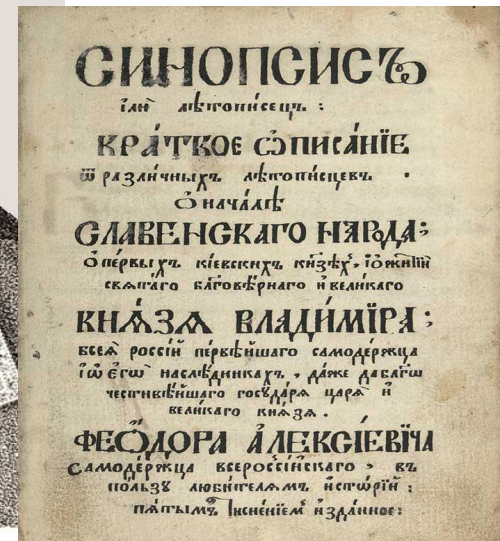 СИНОПСИСЪ
їлѝ лѣтопи́сецъ :
КРА́ТКОЕ Ѡ҆ПИСА́НЇЕ
ѿ разли́чныхъ лѣтопи́сцевъ .
Ѡ҆ нача́лѣ
СЛАВЕ́НСКАГО НАРО́ДА ;
Ѡ пе́рвыхъ кі́евскихъ кн҃зѣхъ ,
свѧта́го бл҃говѣ́рнаго и҆ вели́каго
КНѦ́ЗѦ ВЛАДИ́МЇРА ;
всеѧ̀ россі́и пе́рвѣйшаго самоде́ржца
ї ѡ҆ є҆гѡ̀ наслѣ́дникахъ , да́же до бл҃гоч
чести́вѣйшаго госꙋда́рѧ царѧ̀ и҆
вели́каго кнѧ́зѧ .
ФЕѠ́ДОРА А҆ЛЕѮІ́ЕВИЧА
Самоде́ржца всеросси́йскаго , въ
по́льзꙋ люби́телемъ и҆сто́рїи ;
пѧ́тымъ тисне́нїемъ и҆́зданное :